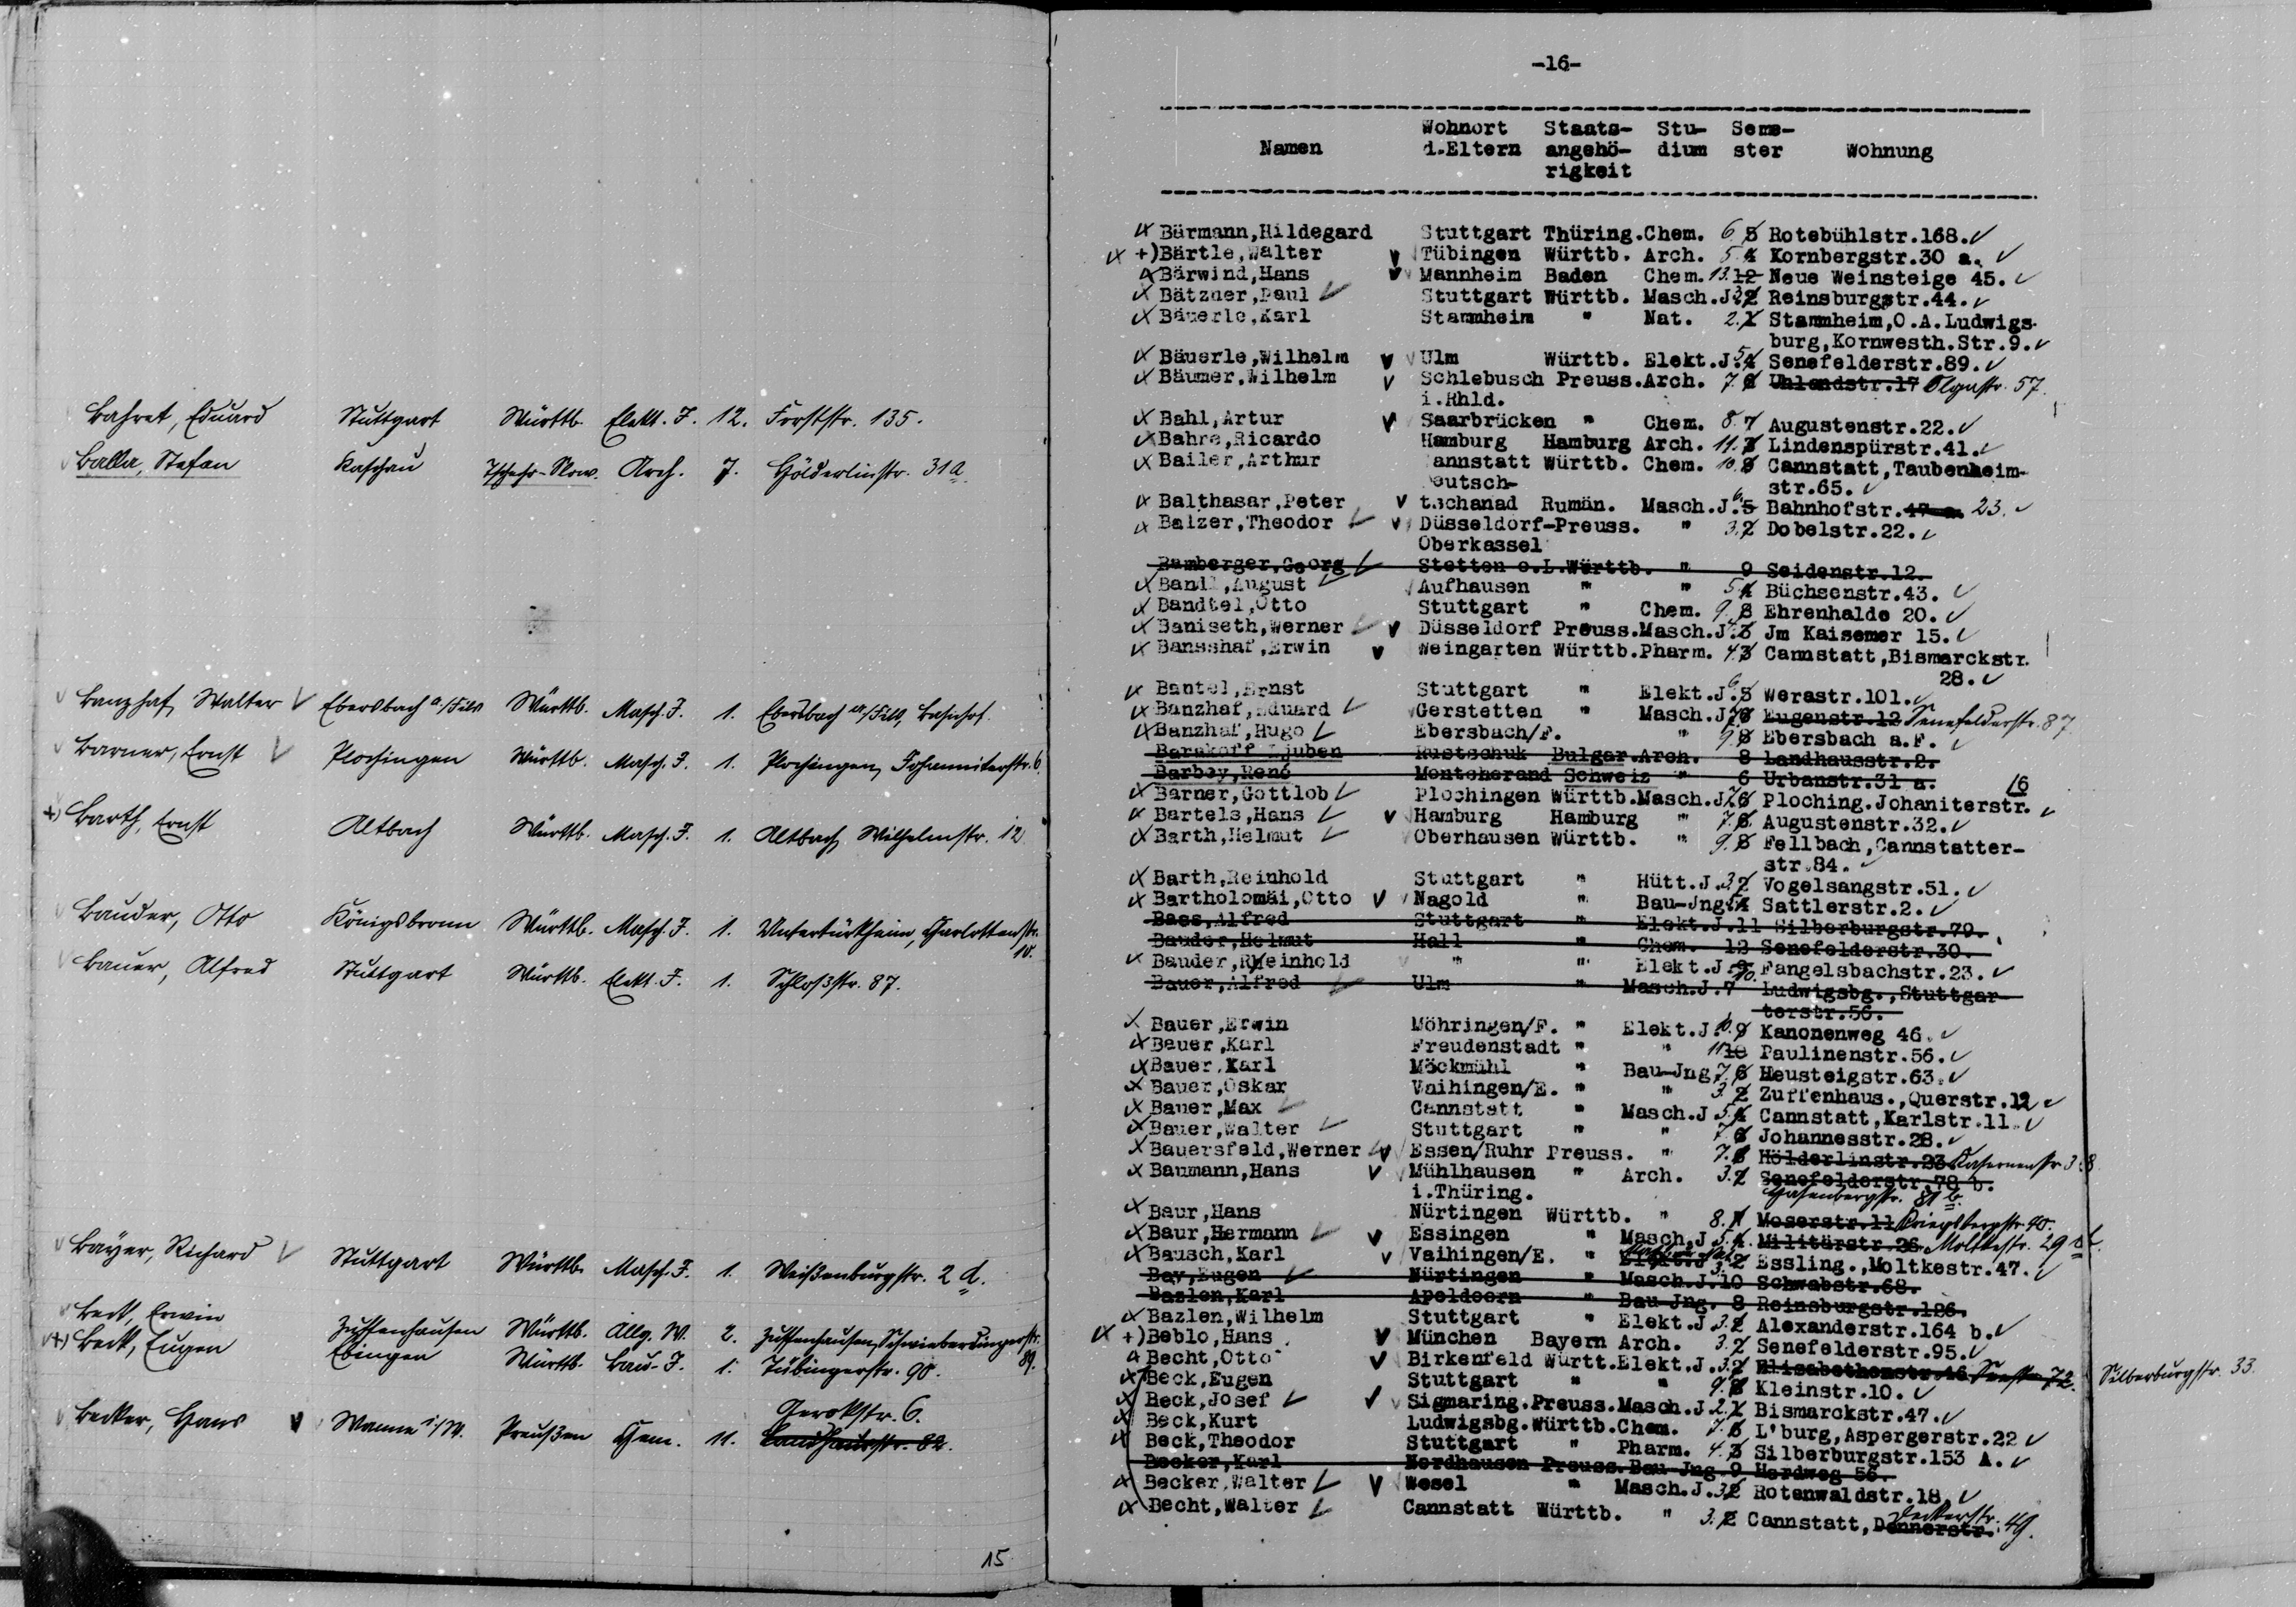 Bahret, Eduard Stuttgart Württb. Elekt. J. 12. Forststr. 135.
Balla, Stefan Kaschau Tschecho-Slow. Arch. 7. Hölderlinstr. 31a.
Banzhaf, Walter Ebersbach a./Fils Württb. Masch. J. 1. Ebersbach a/Fils, Bahnhof.
Barner, Ernst Plochingen Württb. Masch. J. 1. Plochingen, Johanniterstr. 6.
+) Barth, Ernst Altbach Württb. Masch. J. 1. Altbach, Wilhelmstr. 12
Bauder, Otto Königsbronn Württb. Masch. J. 1. Untertürkheim, Charlottenstr.
10.
Bauer, Alfred Stuttgart Württb. Elekt. J. 1. Schloßstr. 87.
Bayer, Richard Stuttgart Württb. Masch. J. 1. Weißenburgstr. 2 d.
Beck, Erwin Zuffenhausen Württb. Allg. W. 2. Zuffenhausen, Schwieberdingerstr.
89.
+) Beck, Eugen Ebingen Württb. Bau-J. 1. Tübingerstr. 90.
Gerokstr. 6.
Becker, Hans Wanne i/W. Preußen Chem. 11. Landhausstr. 82.
15
-16-
Namen Wohnort d.Eltern Staats-angehö-rigkeit Stu-dium Seme-ster Wohnung
Bärmann,Hildegard Stuttgart Thüring.Chem. 6. 5 Rotebühlstr.168.
+)Bärtle,Walter Tübingen Württb. Arch. 5. 4 Kornbergstr.30 a.
Bärwind,Hans Mannheim Baden Chem. 13. 12 Neue Weinsteige 45.
Bätzner,Paul Stuttgart Württb. Masch.J. 3. 2 Reinsburgstr.44.
Bäuerle,Karl Stammheim " Nat. 2. 1 Stammheim,O.A.Ludwigs-
burg,Kornwesth.Str.9.
Bäuerle,Wilhelm Ulm Württb. Elekt.J. 5. 4 Senefelderstr.89.
Bäumer,Wilhelm Schlebusch Preuss.Arch. 7. 6 Uhlandstr.17 Olgastr. 57.
i.Rhld.
Bahl,Artur Saarbrücken " Chem. 8. 7 Augustenstr.22.
Bahre,Ricardo Hamburg Hamburg Arch. 11. Lindenspürstr.41.
Bailer,Arthur annstatt Württb. Chem. 10. 9 Cannstatt,Taubenheim-
eutsch- str.65.
Balthasar,Peter tschanad Rumän. Masch.J. 6. 5 Bahnhofstr. 47 a. 23.
Balzer,Theodor Düsseldorf-Preuss. " 3. 2 Dobelstr.22.
Oberkassel
Bamberger,Georg Stetten o.L.Württb. " 9 Seidenstr.12.
Bandl,August Aufhausen " " 5. 4 Büchsenstr.43.
Bandtel,Otto Stuttgart " Chem. 9. 8 Ehrenhalde 20.
Baniseth,Werner Düsseldorf Preuss.Masch.J. 3 Jm Kaisemer 15.
Bansshaf,Erwin Weingarten Württb.Pharm. 4. 3 Cannstatt,Bismarckstr.
28.
Bantel,Ernst Stuttgart " Elekt.J. 6. 5 Werastr.101.
Banzhaf,Eduard Gerstetten " Masch.J. 7. 6 Eugenstr.12 Senefelderstr. 87
Banzhaf,Hugo Ebersbach/F. " 9. 8 Ebersbach a.F.
Barakoff Ljuben Rustschuk Bulgar.Arch. 8 Landhausstr.2.
Barbey,René Montcherand Schweiz " 6 Urbanstr.31 a.
Barner,Gottlob Plochingen Württb.Masch.J. 7. 6 Ploching.Johaniterstr. 6
Bartels,Hans Hamburg Hamburg " 7. 6. Augustenstr.32.
Barth,Helmut Oberhausen Württb. " 9. 8 Fellbach,Cannstatter-
str.84.
Barth,Reinhold Stuttgart " Hütt.J. 3. 2 Vogelsangstr.51.
Bartholomäi,Otto Nagold " Bau-Jng. 5. 4 Sattlerstr.2.
Bass,Alfred Stuttgart " Elekt.J.11 Silberburgstr.79.
Bauder,Helmut Hall " Chem. 12 Senefelderstr.30.
Bauder,Reinhold " " Elekt.J. 9. 10. Fangelsbachstr.23.
Bauer,Alfred Ulm " Masch.J.7 Ludwigsbg.,Stuttgar-
terstr.56.
Bauer,Erwin Möhringen/F. " Elekt.J. 10. 9 Kanonenweg 46.
Bauer,Karl Freudenstadt " " 11 10 Paulinenstr.56.
Bauer,Karl Möckmühl " Bau-Jng. 7. 6 Heusteigstr.63.
Bauer,Oskar Vaihingen/E. " " 3. 2 Zuffenhaus.,Querstr.12
Bauer,Max Cannstatt " Masch.J. 5. 4 Cannstatt,Karlstr.11.
Bauer,Walter Stuttgart " " 7. 6 Johannesstr.28.
Bauersfeld,Werner Essen/Ruhr Preuss. " 7. 6 Hölderlinstr.23 Kasernenstr 38
Baumann,Hans Mühlhausen " Arch. 3. 2 Senefelderstr.78 b.
i.Thüring. Hasenbergstr. 81 b.
Baur,Hans Nürtingen Württb. " 8. 7 Moserstr.11 Kriegsbergstr. 40.
Baur,Hermann Essingen " Masch.J. 5. 4. Militärstr.26 Moltkestr. 29
Bausch,Karl Vaihingen/E. " Elekt.J. 3. 2 Essling.,Moltkestr.47.
Bay,Eugen Nürtingen " Masch.J.10 Schwabstr.68.
Bazlen,Karl Apeldoorn " Bau-Jng. 8 Reinsburgstr.186.
Bazlen,Wilhelm Stuttgart " Elekt.J. 3. 2 Alexanderstr.164 b.
+)Beblo,Hans München Bayern Arch. 3. 2 Senefelderstr.95.
Becht,Otto Birkenfeld Württ.Elekt.J. 3. 2 Elisabethenstr.46 72. Silberburgstr. 33.
Beck,Eugen Stuttgart " " 9. 8 Kleinstr.10.
Beck,Josef Sigmaring.Preuss.Masch.J. 2. 1 Bismarckstr.47.
Beck,Kurt Ludwigsbg.Württb.Chem. 7. 6 L'burg,Aspergerstr.22
Beck,Theodor Stuttgart " Pharm. 4. 3 Silberburgstr.153 A.
Becker,Karl Nordhausen Preuss.Bau-Jng.9 Herdweg 56.
Becker,Walter Wesel " Masch.J. 3. 2 Rotenwaldstr.18.
Becht,Walter Cannstatt Württb. " 3. 2 Cannstatt,Dennerstr. Deckerstr. 49.